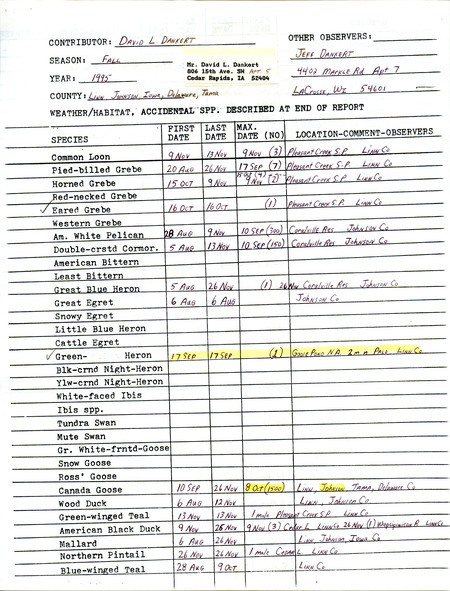 CONTRIBUTOR: David L Dankert
OTHER OBSERVERS:
SEASON: Fall
Mr. David L. Dankert
806 15th Ave. SW Apt 5
Cedar Rapids, IA 52404
Jeff Dankert
YEAR: 1995
4402 Markle Rd Apt 7
COUNTY: Linn, Johnson, Iowa, Delaware, Tama
LaCrosse, WI 54601
WEATHER/HABITAT, ACCIDENTAL SPP. DESCRIBED AT END OF REPORT
SPECIES FIRST DATE LAST DATE MAX. DATE (NO) LOCATION-COMMENT-OBSERVERS
Common Loon 9 Nov 13 Nov 9 Nov (3) Pleasant Creek S.P. Linn Co
Pied-billed Grebe 20 Aug 26 Nov 17 Sep (7) Pleasant Creek S.P. Linn Co
Horned Grebe 15 Oct 9 Nov 15 Oct (4) 9 Nov (2) Pleasant Creek S.P. Linn Co
Red-necked Grebe
✓ Eared Grebe 16 Oct 16 Oct (1) Pleasant Creek S.P. Linn Co
Western Grebe
Am. White Pelican 28 Aug 9 Nov 10 Sep (300) Coralville Res. Johnson Co
Double-crstd Cormor. 5 Aug 13 Nov 10 Sep (150) Coralville Res Johnson Co
American Bittern
Least Bittern
Great Blue Heron 5 Aug 26 Nov (1) 26 Nov Coralville Res Johnson Co
Great Egret 6 Aug 6 Aug Johnson Co
Snowy Egret
Little Blue Heron
Cattle Egret
✓ Green- Heron 17 Sep 17 Sep (2) Goose Pond N.A. 2 m n Palo Linn Co
Blk-crnd Night-Heron
Ylw-crnd Night-Heron
White-faced Ibis
Ibis spp.
Tundra Swan
Mute Swan
Gr. White-frntd-Goose
Snow Goose
Ross' Goose
Canada Goose 10 Sep 26 Nov 8 Oct (1500) Linn, Johnson, Tama, Delaware Co
Wood Duck 6 Aug 12 Nov Linn, Johnson Co
Green-winged Teal 13 Nov 13 Nov 1 male Pleasant Creek S.P. Linn Co
American Black Duck 9 Nov 26 Nov 9 Nov (3) Cedar L. Linn Co 26 Nov (1) Wapsipinicon R Linn Co
Mallard 6 Aug 26 Nov Linn, Johnson, Iowa Co
Northern Pintail 26 Nov 26 Nov 1 male Cedar L Linn Co
Blue-winged Teal 28 Aug 9 Oct Linn Co